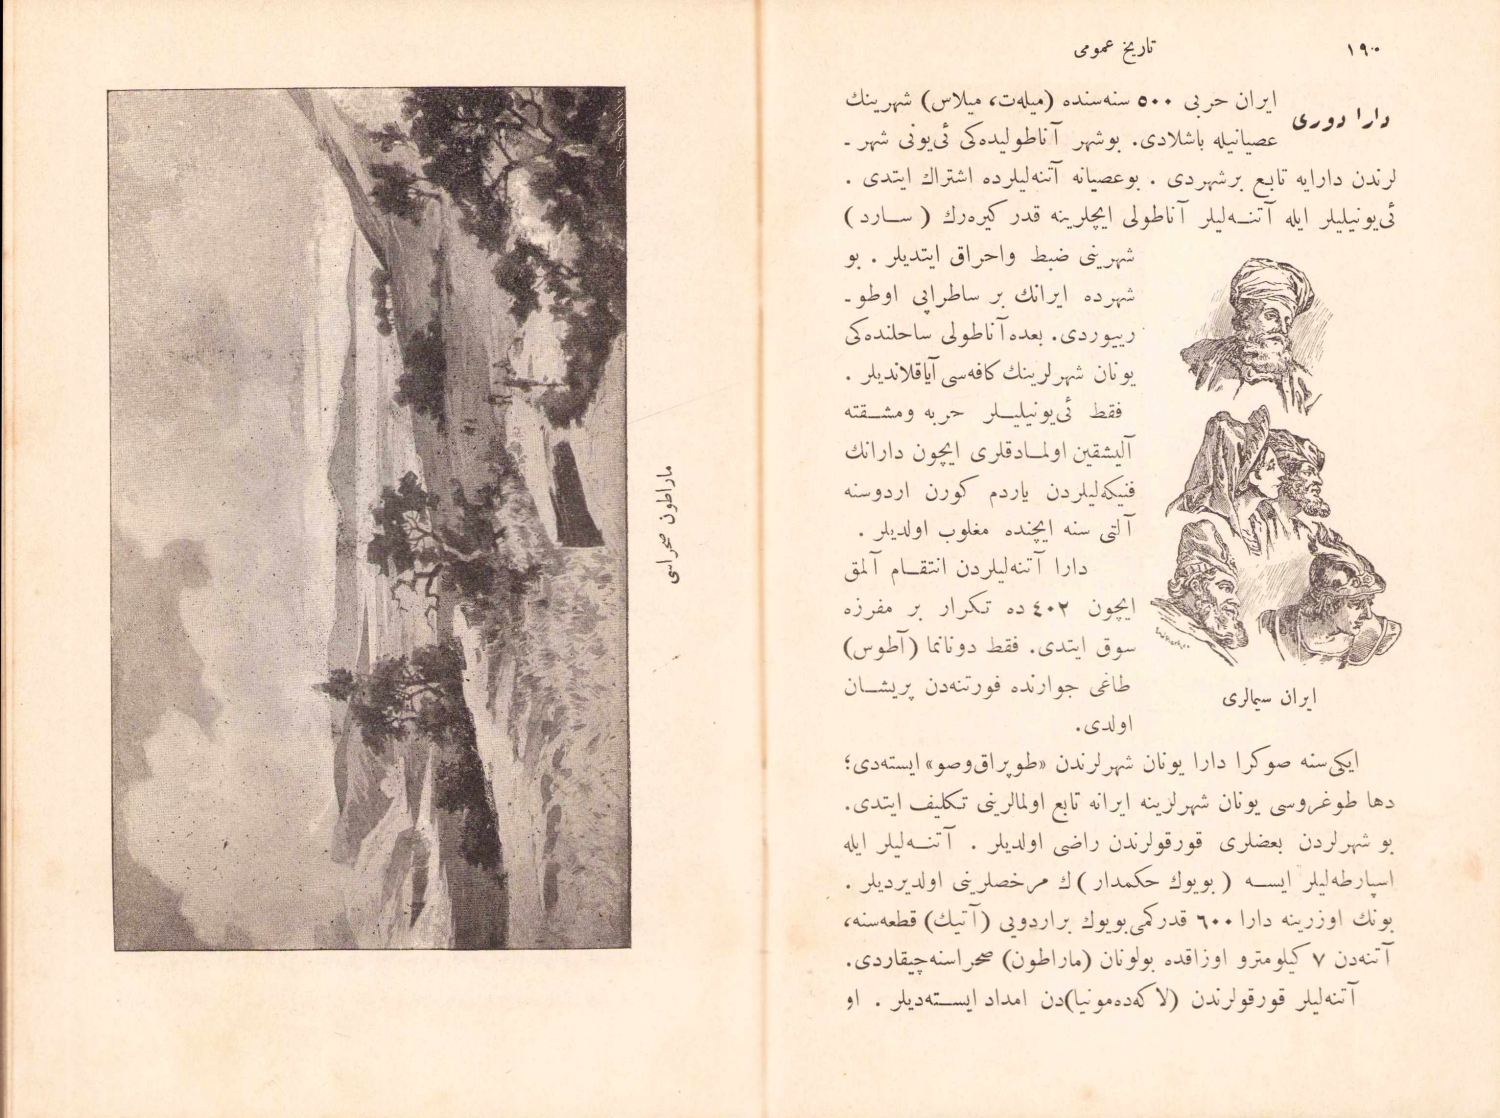 ١٩٠
تاريخ عمومى
دارا دورى
ايران حربى ٥٠٠ سنه‌سنده (ميله‌ت، ميلاس) شهرينك
عصيانيله باشلادى. بوشهر آناطوليده‌كى ئى‌يونى شهر ـ
لرندن دارايه تابع برشهردى . بوعصيانه آتنه‌ليلرده اشتراك ايتدى .
ئى‌يونيليلر ايله آتنــه‌ليلر آناطولى ايچلرينه قدر كيره‌رك ( ســارد )
شهرينى ضبط واحراق ايتديلر . بو
شهرده ايرانك بر ساطراپى اوطو ـ
رييوردى. بعده آناطولى ساحلنده‌كى
يونان شهرلرينك كافه‌سى آياقلانديلر .
فقط ئى‌يونيليــلر حربه ومشــقته
آليشقين اولمــادقلرى ايچون دارانك
فنيكه‌ليلردن ياردم كورن اردوسنه
آلتى سنه ايچنده مغلوب اولديلر .
دارا آتنه‌ليلردن انتقــام آلمق
ايچون ٤٠٢ ده تكرار بر مفرزه
سوق ايتدى. فقط دونانما (آطوس)
طاغى جوارنده فورتنه‌دن پريشــان
اولدى.
ايران سيمالرى
ايكى سنه صوكرا دارا يونان شهرلرندن «طوپراق‌وصو» ايسته‌دى؛
دها طوغروسى يونان شهرلرينه ايرانه تابع اولمالرينى تكليف ايتدى.
بو شهرلردن بعضلرى قورقولرندن راضى اولديلر . آتنــه‌ليلر ايله
اسپارطه‌ليلر ايســه ( بويوك حكمدار )ك مرخصلرينى اولديرديلر .
بونك اوزرينه دارا ٦٠٠ قدركمى‌بويوك براردويى (آتيك) قطعه‌سنه،
آتنه‌دن ٧ كيلومترو اوزاقده بولونان (ماراطون) صحراسنه‌چيقاردى.
آتنه‌ليلر قورقولرندن (لاكه‌ده‌مونيا)دن امداد ايســته‌ديلر . او
ماراطون صحراسى